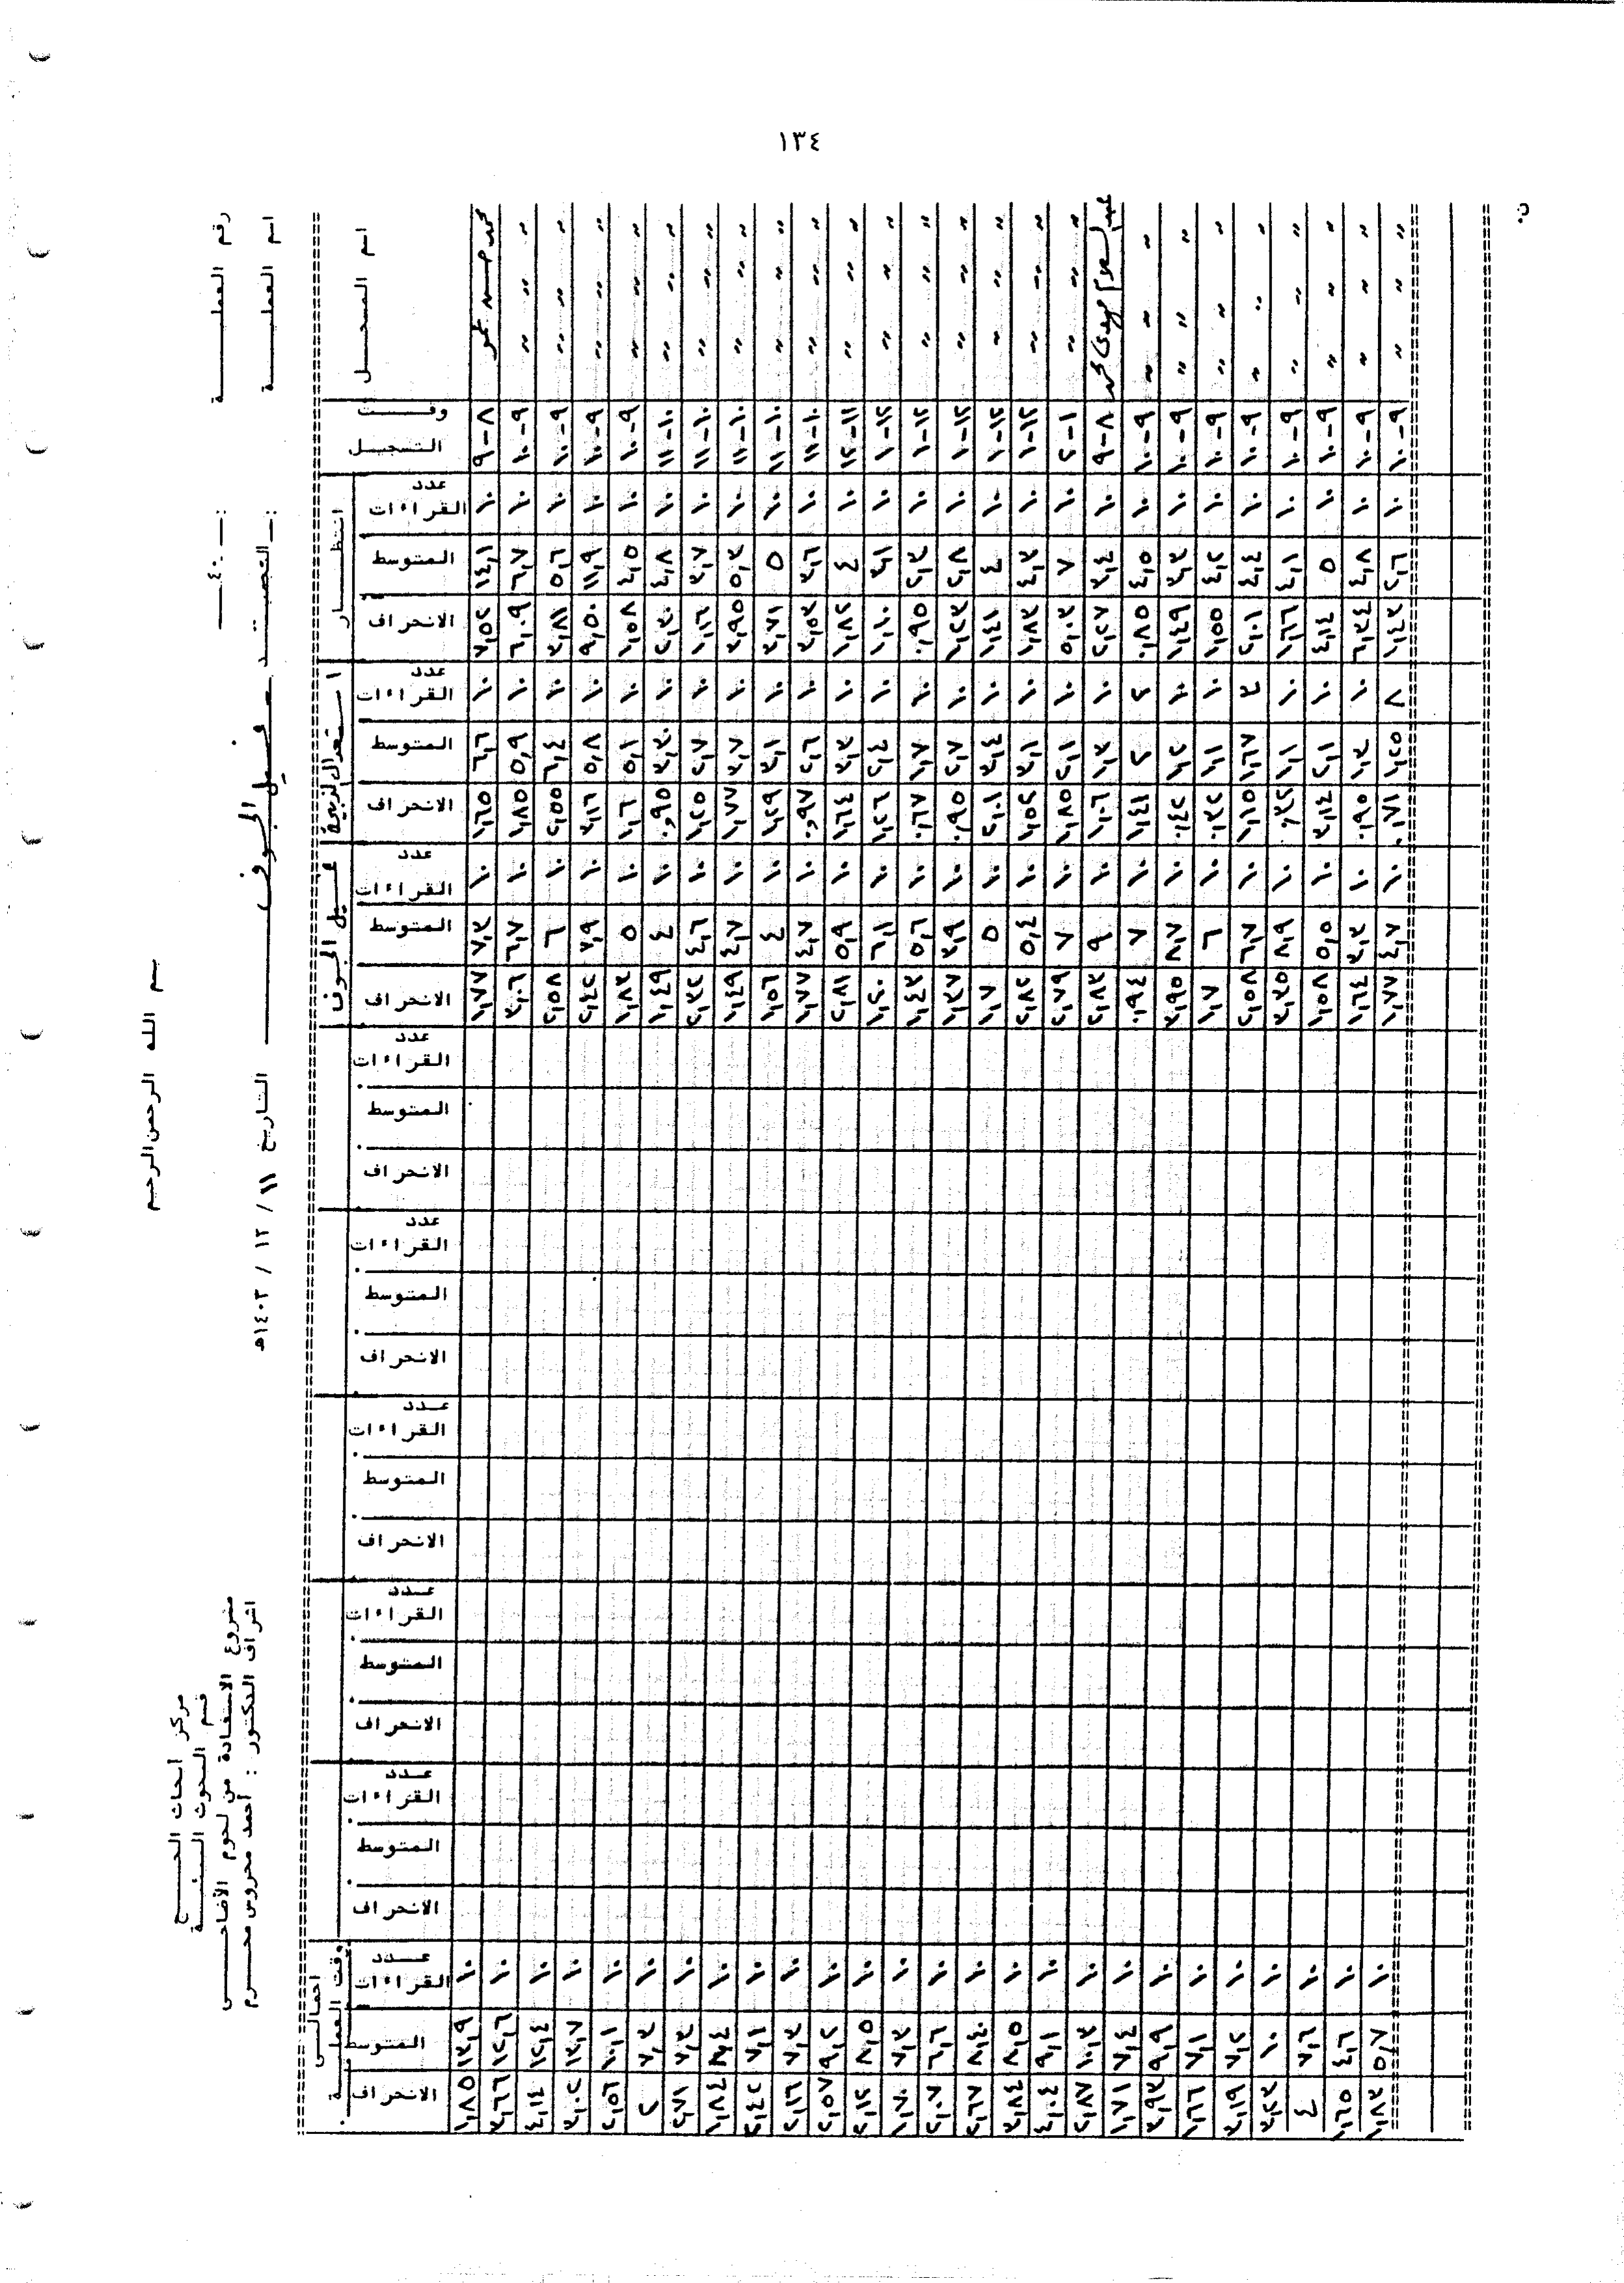 ١٣٤
بسم الله الرحمن الرحيم
مركز أبحاث الحــــج
قسم البحوث
مشروع الاستفادة من لحوم الأضاحــــى
اشراف الدكتور : أحمد محروس محـــرم
رقم العمليـــــــة :ـــ ٤٠
اسم العمليـــــــة :ـــ غسيل الجوف التاريخ ١١ / ١٢ / ١٤٠٣هـ
اسم المسجـــــل | وقـــت التسجيل | انتظـــار | استعدال الذبيحة | غسيل الجوف | اجمالــى وقت العمليــة
عدد القراءات | المتوسط | الانحراف | عدد القراءات | المتوسط | الانحراف | عدد القراءات | المتوسط | الانحراف | عدد القراءات | المتوسط | الانحراف | عدد القراءات | المتوسط | الانحراف | عدد القراءات | المتوسط | الانحراف | عدد القراءات | المتوسط | الانحراف | عدد القراءات | المتوسط | الانحراف | عدد القراءات | المتوسط | الانحراف
محمد حسن | ٨-٩ | ١٠ | ١٤,١ | ٧,٥٢ | ١٠ | ٦,٦ | ١,٦٥ | ١٠ | ٧,٣ | ١,٧٧ | ١٠ | ١٣,٩ | ١,٨٥
" " " | ٩-١٠ | ١٠ | ٦,٧ | ٦,٠٩ | ١٠ | ٥,٩ | ١,٨٥ | ١٠ | ٦,٧ | ٣,٠٦ | ١٠ | ١٢,٦ | ٣,٦٦
" " " | ٩-١٠ | ١٠ | ٥,٦ | ٣,٨١ | ١٠ | ٦,٤ | ٢,٥٥ | ١٠ | ٦ | ٢,٥٨ | ١٠ | ١٢,٤ | ٤,١٤
" " " | ٩-١٠ | ١٠ | ١١,٩ | ٩,٥٠ | ١٠ | ٥,٨ | ٣,١٦ | ١٠ | ٧,٩ | ٢,٤٢ | ١٠ | ١٣,٧ | ٣,٠٢
" " " | ٩-١٠ | ١٠ | ٤,٥ | ١,٥٨ | ١٠ | ٥,١ | ١,٦ | ١٠ | ٥ | ١,٨٣ | ١٠ | ١٠,١ | ٢,٥٦
" " " | ١٠-١١ | ١٠ | ٤,٨ | ٢,٣٠ | ١٠ | ٣,٣٠ | ٠,٩٥ | ١٠ | ٤ | ١,٤٩ | ١٠ | ٧,٣ | ٢
" " " | ١٠-١١ | ١٠ | ٣,٧ | ١,١٦ | ١٠ | ٢,٧ | ١,٢٥ | ١٠ | ٤,٦ | ٢,٣٢ | ١٠ | ٧,٣ | ٢,٧١
" " " | ١٠-١١ | ١٠ | ٥,٣ | ٣,٩٥ | ١٠ | ٣,٧ | ١,٧٧ | ١٠ | ٤,٧ | ١,٤٩ | ١٠ | ٨,٤ | ١,٨٤
" " " | ١٠-١١ | ١٠ | ٥ | ٣,٧١ | ١٠ | ٣,١ | ١,٢٩ | ١٠ | ٤ | ١,٥٦ | ١٠ | ٧,١ | ٢,٤٢
" " " | ١٠-١١ | ١٠ | ٣,٦ | ٣,٥٣ | ١٠ | ٢,٦ | ٠,٩٧ | ١٠ | ٤,٧ | ١,٧٧ | ١٠ | ٧,٣ | ٢,١٦
" " " | ١١-١٢ | ١٠ | ٤ | ١,٨٢ | ١٠ | ٣,٣ | ١,٦٤ | ١٠ | ٥,٩ | ٢,٨١ | ١٠ | ٩,٢ | ٢,٥٧
" " " | ١٢-١ | ١٠ | ٣,١ | ١,١٠ | ١٠ | ٢,٤ | ١,٢٦ | ١٠ | ٦,١ | ١,٢٠ | ١٠ | ٨,٥ | ٢,١٢
" " " | ١٢-١ | ١٠ | ٢,٣ | ٠,٩٥ | ١٠ | ١,٧ | ٠,٦٧ | ١٠ | ٥,٦ | ١,٤٣ | ١٠ | ٧,٣ | ١,٧٠
" " " | ١٢-١ | ١٠ | ٢,٨ | ١,٢٣ | ١٠ | ٢,٧ | ٠,٩٥ | ١٠ | ٣,٩ | ١,٣٧ | ١٠ | ٦,٦ | ٢,٠٧
" " " | ١٢-١ | ١٠ | ٤ | ١,٤١ | ١٠ | ٣,٤ | ٢,٠١ | ١٠ | ٥ | ١,٧ | ١٠ | ٨,٤٠ | ٢,٦٧
" " " | ١٢-١ | ١٠ | ٤,٣ | ١,٨٣ | ١٠ | ٣,١ | ١,٥٢ | ١٠ | ٥,٤ | ٢,٨٢ | ١٠ | ٨,٥ | ٣,٨٤
" " " | ١-٢ | ١٠ | ٧ | ٥,٠٣ | ١٠ | ٢,١ | ١,٨٥ | ١٠ | ٧ | ٢,٧٩ | ١٠ | ٩,١ | ٤,٠٤
عبد السلام مهدى محمد | ٨-٩ | ١٠ | ٣,٤ | ٢,٢٧ | ١٠ | ١,٣ | ١,٠٦ | ١٠ | ٩ | ٢,٨٣ | ١٠ | ١٠,٣ | ٢,٨٧
" " " | ٩-١٠ | ١٠ | ٤,٥ | ٠,٨٥ | ٢ | ٢ | ١,٤١ | ١٠ | ٧ | ٠,٩٤ | ١٠ | ٧,٤ | ١,٧١
" " " | ٩-١٠ | ١٠ | ٣,٣ | ١,٤٩ | ١٠ | ١,٢ | ٠,٤٢ | ١٠ | ٨,٧ | ٣,٩٥ | ١٠ | ٩,٩ | ٣,٩٣
" " " | ٩-١٠ | ١٠ | ٤,٢ | ١,٥٥ | ١٠ | ١,١ | ٠,٣٢ | ١٠ | ٦ | ١,٧ | ١٠ | ٧,١ | ١,٦٦
" " " | ٩-١٠ | ١٠ | ٤,٤ | ٢,٠١ | ٣ | ١,٦٧ | ١,١٥ | ١٠ | ٦,٧ | ٢,٥٨ | ١٠ | ٧,٢ | ٣,١٩
" " " | ٩-١٠ | ١٠ | ٤,١ | ١,٦٦ | ١٠ | ١,١ | ٠,٣٢ | ١٠ | ٨,٩ | ٣,٣٥ | ١٠ | ١٠ | ٣,٢٣
" " " | ٩-١٠ | ١٠ | ٥ | ٤,١٤ | ١٠ | ٢,١ | ٣,١٤ | ١٠ | ٥,٥ | ١,٥٨ | ١٠ | ٧,٦ | ٤
" " " | ٩-١٠ | ١٠ | ٤,٨ | ٦,٣٤ | ١٠ | ١,٣ | ٠,٩٥ | ١٠ | ٣,٣ | ١,٦٤ | ١٠ | ٤,٦ | ١,٦٥
" " " | ٩-١٠ | ١٠ | ٢,٦ | ١,٤٣ | ٨ | ١,٢٥ | ٠,٧١ | ١٠ | ٤,٧ | ١,٧٧ | ١٠ | ٥,٧ | ١,٨٣